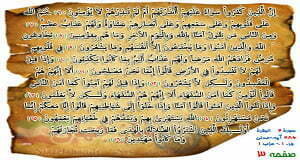 إِنَّ الَّذِينَ كَفَرُوا سَوَاءٌ عَلَيْهِمْ أَأَنْذَرْتَهُمْ أَمْ لَمْ تُنْذِرْهُمْ لَا يُؤْمِنُونَ خَتَمَ اللَّهُ
عَلَىٰ قُلُوبِهِمْ وَعَلَىٰ سَمْعِهِمْ وَعَلَىٰ أَبْصَارِهِمْ غِشَاوَةٌ وَلَهُمْ عَذَابٌ عَظِيمٌ
وَمِنَ النَّاسِ مَنْ يَقُولُ آمَنَّا بِاللَّهِ وَبِالْيَوْمِ الْآخِرِ وَمَا هُمْ بِمُؤْمِنِينَ يُخَادِعُونَ
اللَّهَ وَالَّذِينَ آمَنُوا وَمَا يَخْدَعُونَ إِلَّا أَنْفُسَهُمْ وَمَا يَشْعُرُونَ فِي قُلُوبِهِمْ
مَرَضٌ فَزَادَهُمُ اللَّهُ مَرَضًا وَلَهُمْ عَذَابٌ أَلِيمٌ بِمَا كَانُوا يَكْذِبُونَ وَإِذَا قِيلَ
لَهُمْ لَا تُفْسِدُوا فِي الْأَرْضِ قَالُوا إِنَّمَا نَحْنُ مُصْلِحُونَ أَلَا إِنَّهُمْ هُمُ
الْمُفْسِدُونَ وَلَٰكِنْ لَا يَشْعُرُونَ وَإِذَا قِيلَ لَهُمْ آمِنُوا كَمَا آمَنَ النَّاسُ
قَالُوا أَنُؤْمِنُ كَمَا آمَنَ السُّفَهَاءُ أَلَا إِنَّهُمْ هُمُ السُّفَهَاءُ وَلَٰكِنْ لَا يَعْلَمُونَ
وَإِذَا لَقُوا الَّذِينَ آمَنُوا قَالُوا آمَنَّا وَإِذَا خَلَوْا إِلَىٰ شَيَاطِينِهِمْ قَالُوا إِنَّا مَعَكُمْ إِنَّمَا
نَحْنُ مُسْتَهْزِئُونَ اللَّهُ يَسْتَهْزِئُ بِهِمْ وَيَمُدُّهُمْ فِي طُغْيَانِهِمْ يَعْمَهُونَ
أُولَٰئِكَ الَّذِينَ اشْتَرَوُا الضَّلَالَةَ بِالْهُدَىٰ فَمَا رَبِحَتْ تِجَارَتُهُمْ
وَمَا كَانُوا مُهْتَدِينَ
سورة ۲ البقرة
۲۸۶ آیه-مدنی
جزء ۱ - حزب ۱
صفحه ۳